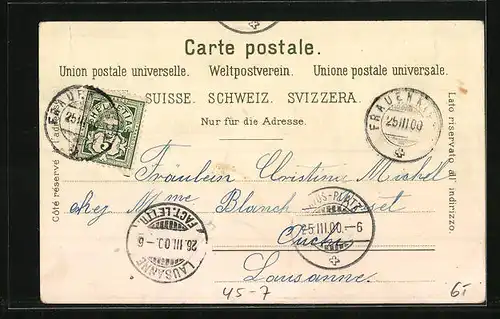 Carte postale.
Union postale universelle. Weltpostverein. Unione postale universale.
SUISSE. SCHWEIZ. SVIZZERA.
Nur für die Adresse.
Côté réservé
Lato riservato all indirizzo.
25 III 00
FRAUENKIRCH
25 III 00
Fräulein Christine Michel
chez Mme Blanch
Ouchy
Lausanne.
HELVETIA
5
25 III 00.-6
LAUSANNE
FACT. LETTR.
26. III 00.-6
45-7
6.-